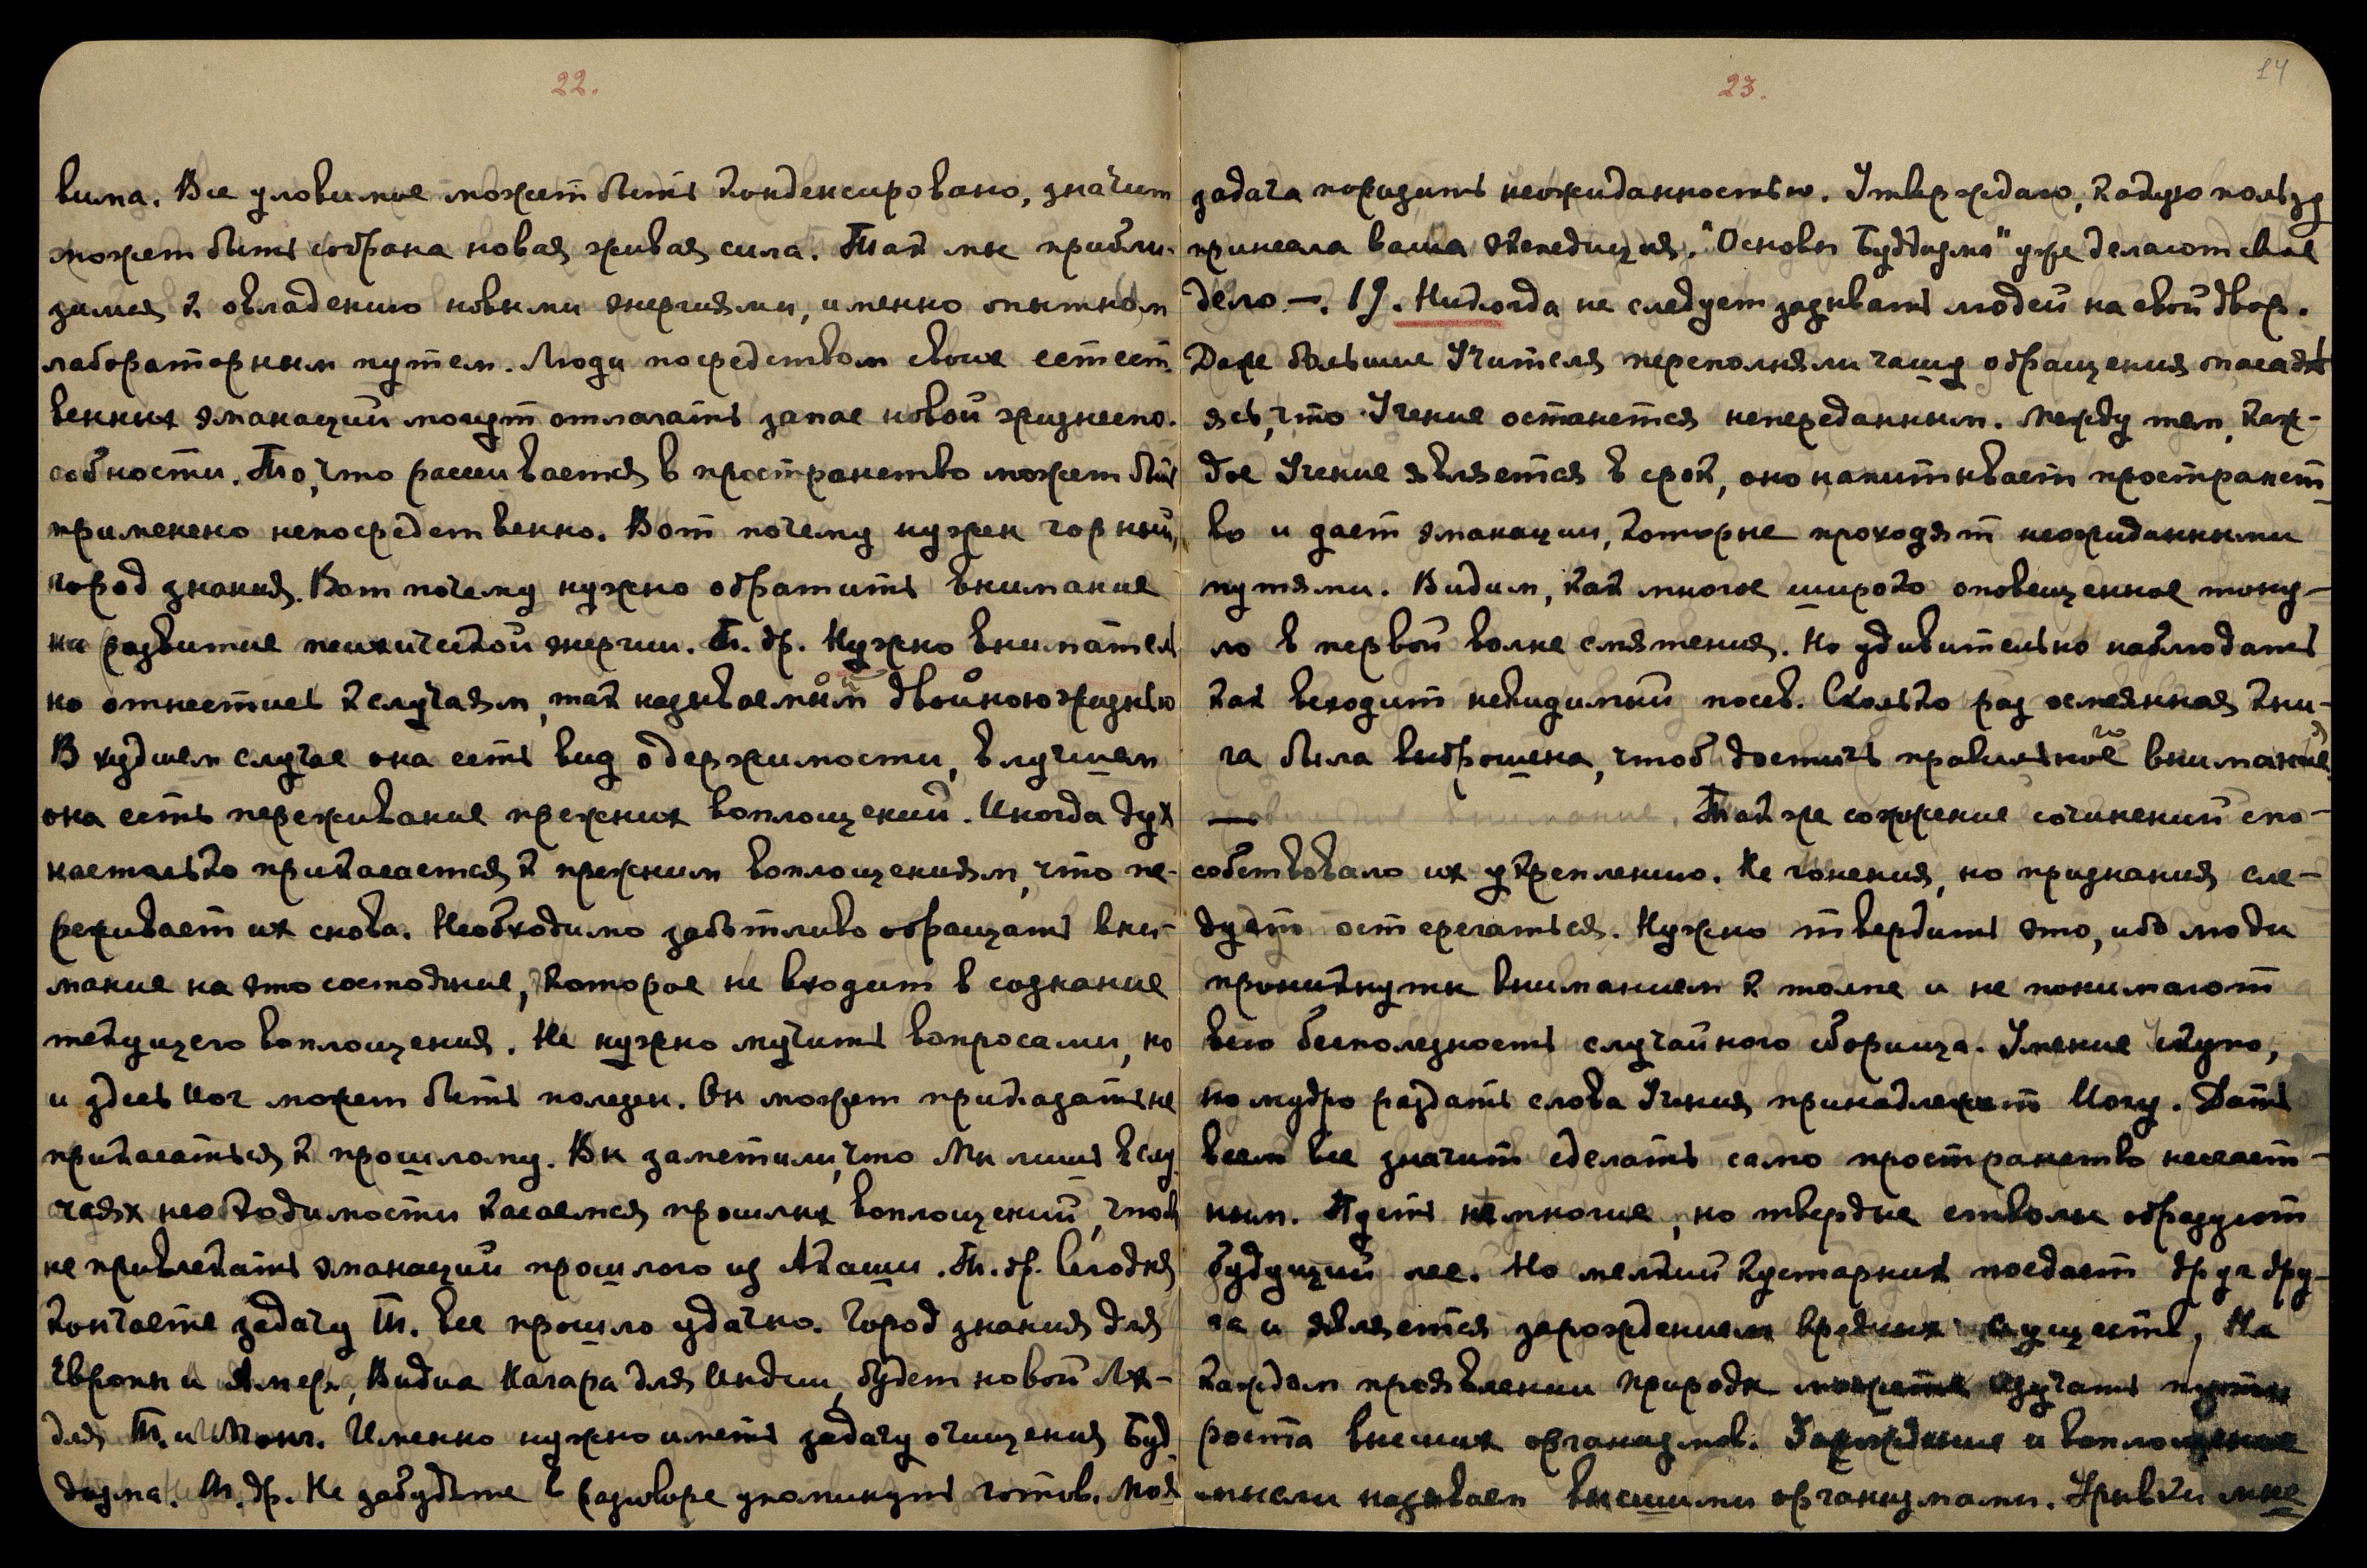 22.
вима. Все уловимое может быть конденсировано, значит
может быть собрана новая живая сила. Так мы прибли-
зимся к овладению новыми энергиями, именно опытном
лабораторным путем. Люди посредством своих естест-
венных эманаций могут отлагать запас новой жизнеспо-
собности. То, что рассеивается в пространство может быть
применено непосредственно. Вот почему нужен горный,
город знания. Вот почему нужно обратить внимание
на развитие психической энергии. Т. др. Нужно вниматель
но отнестись к случаям, так называемый двойною жизнью
В худшем случае она есть вид одержимости, в лучшем
она есть переживание прежних воплощений. Иногда дух
настолько прикасается к прежним воплощениям, что пе-
реживает их снова. Необходимо заботливо обращать вни-
мание на это состояние, которое не входит в сознание
текущего воплощения. Не нужно мучить вопросами, но
и здесь Йог может быть полезен. Он может приказать не
прикасаться к прошлому. Вы заметили, что Мы лишь в слу
чаях необходимости касаемся прошлых воплощений, чтоб
не привлекать эманаций прошлого из Акаши. Т. др. Сегодня
кончаете задачу Т. все прошло удачно. Город знания для
Европы и Амер., Видиа Нагара для Индии, будет новой Лх-
для Т. и Монг. Именно нужно иметь задачу очищения Буд
дизма. Т. др. Не забудьте в разговоре упомянуть готов. Моя
23.
14
задача поразить неожиданностью. Утверждаю, какую пользу
принесла ваша экспедиция. "Основы Буддизма" уже делают свое
дело —. 19. Никогда не следует зазывать людей на свой двор.
Даже большие Учителя переполняли чашу обращения опасая
ясь, что Учение останется непереданным. Между тем, каж-
дое Учение является в срок, оно напитывает пространст-
во и дает эманации, которые проходят неожиданными
путями. Видим, как многое широко оповещенное тону-
ло в первой волне смятения. Но удивительно наблюдать
как всходит невидимый посев. Сколько раз осмеянная кни-
га была выброшена, чтоб достичь правильное внимание
Так же сожжение сочинений спо-
собствовало их укреплению. Не гонения, но признания сле-
дует остерегаться. Нужно твердить это, ибо люди
проникнуты вниманием к толпе и не понимают
всю бесполезность случайного сборища. Умение скупо,
но мудро раздать слова Учения принадлежит Йогу. Дать
всем все значит сделать само пространство несчаст-
ным. Пусть не многие, но твердые стволы образуют
будущий лес. Но мелкий кустарник поедает друг дру-
га и является зарождением вредных существ, На
каждом проявлении природы можете изучать пути
роста высших организмов. Зарождение и воплощение
мысли называем высшими организмами. Урывки мне